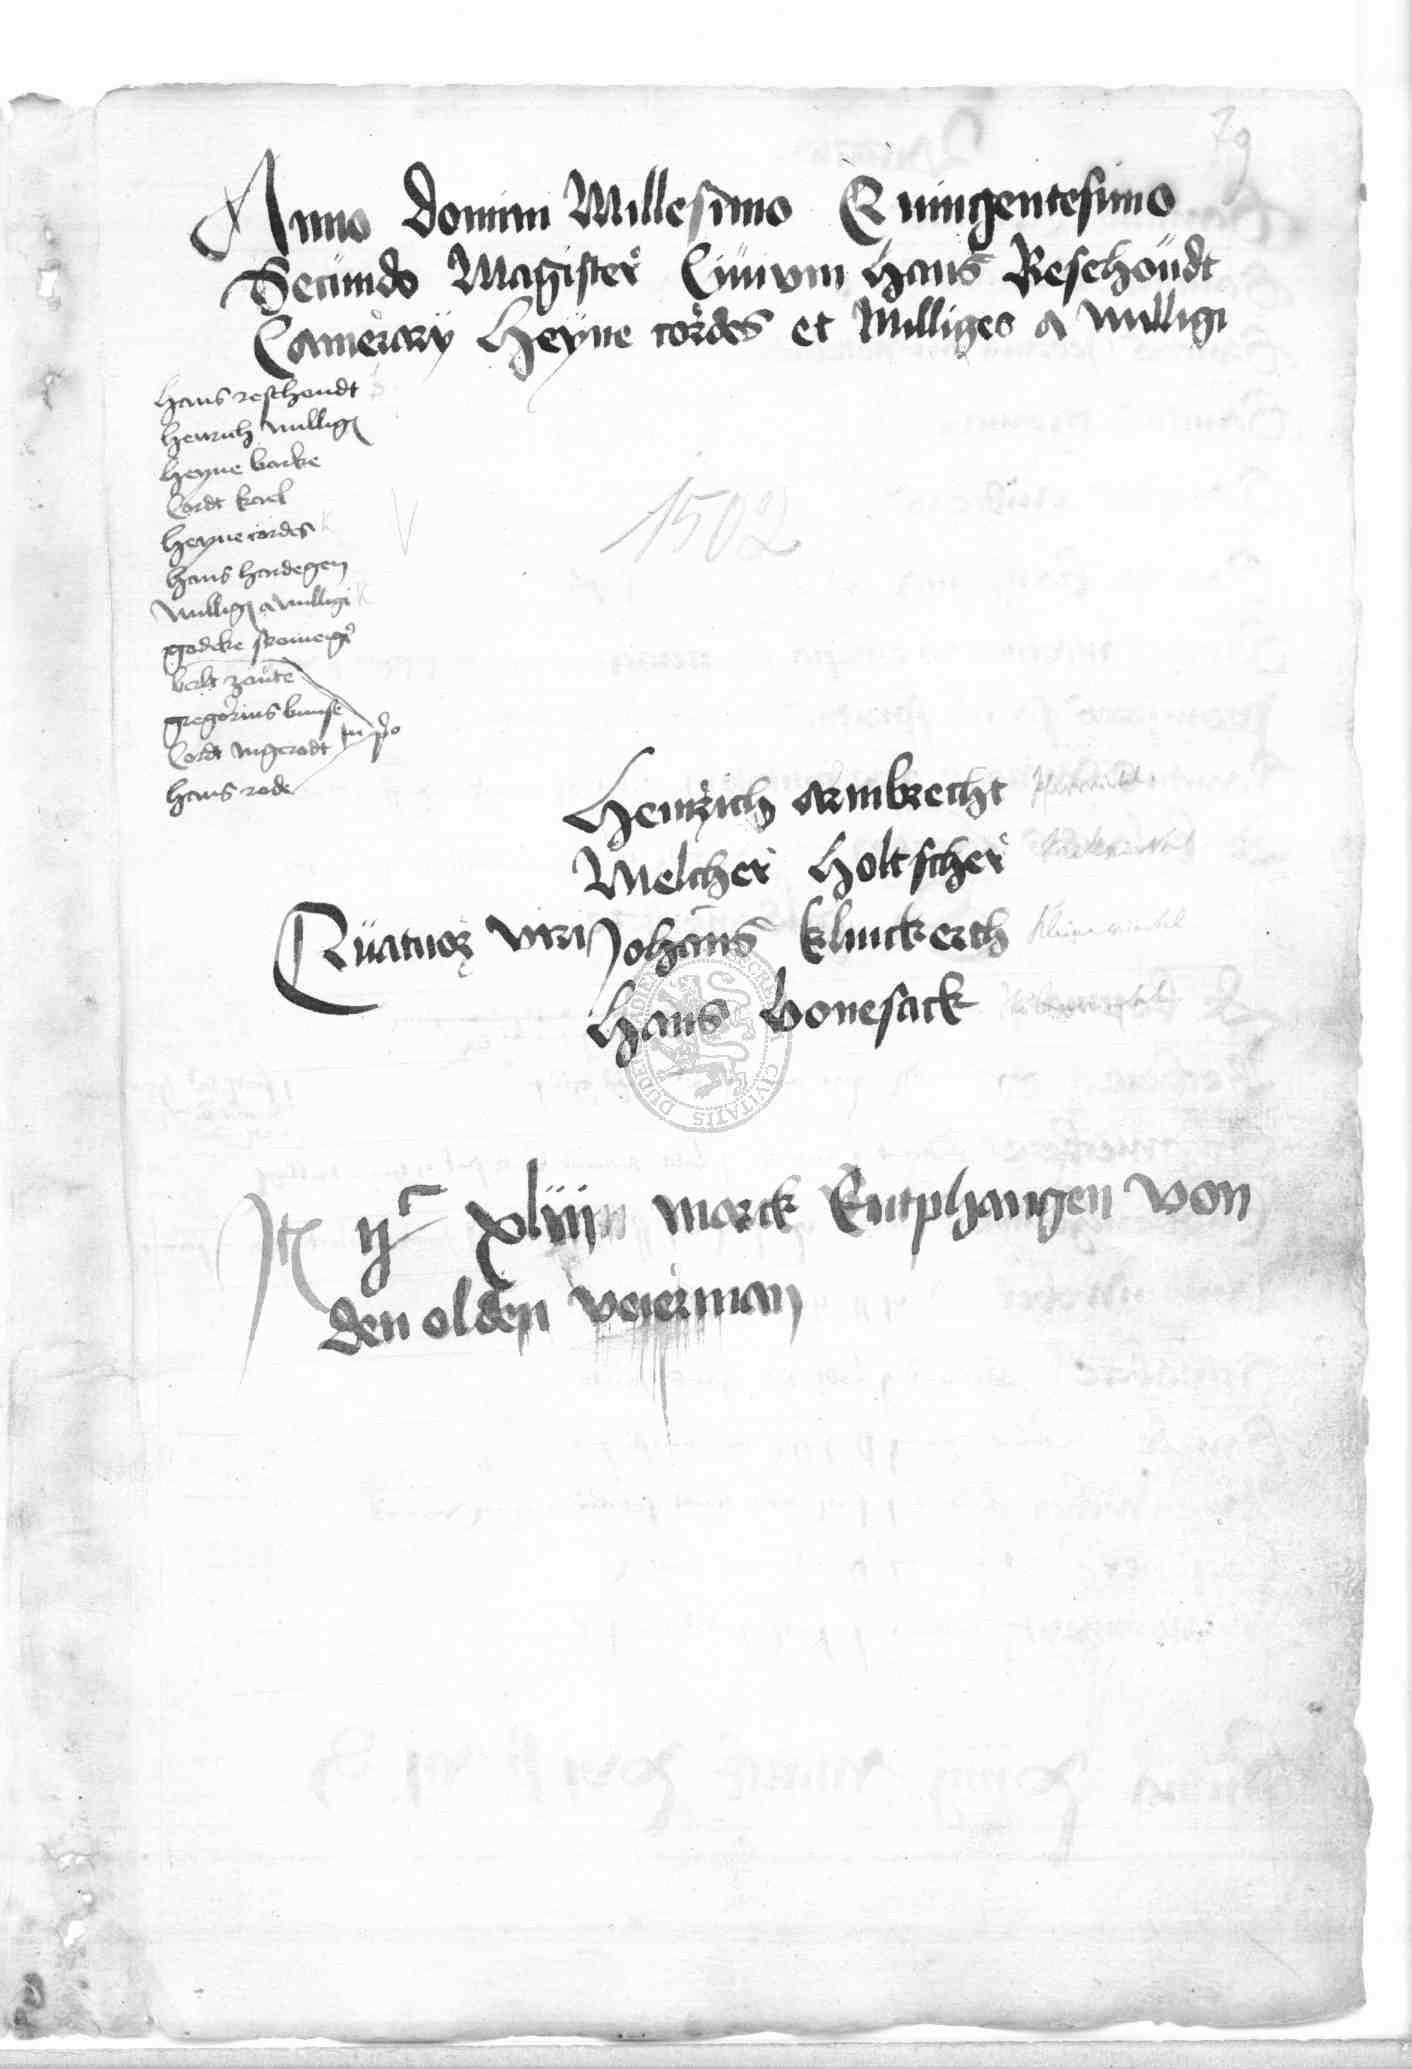 79
Anno domini Millesimo Quingentesimo
Secundo Magister Civivm hans Resehoudt
Camerary Heyne cordes et Williges a willigi
hans resehoudt
heinrich willig
heyne barke
Cordt karl
heyne cordes
hans hardegen
willig a willigi
godeke
bertt zoute
gregorius bunse
Cordt wgerodt
hans rode
1502
Heinrich armbrecht
Melcher Holtscher
Quatuor viri Johans klinckerth
Hans bonesack
It ijc xliiij marck Entphangen von
den olden veierman
SECRETUM CIVITATIS DUDER